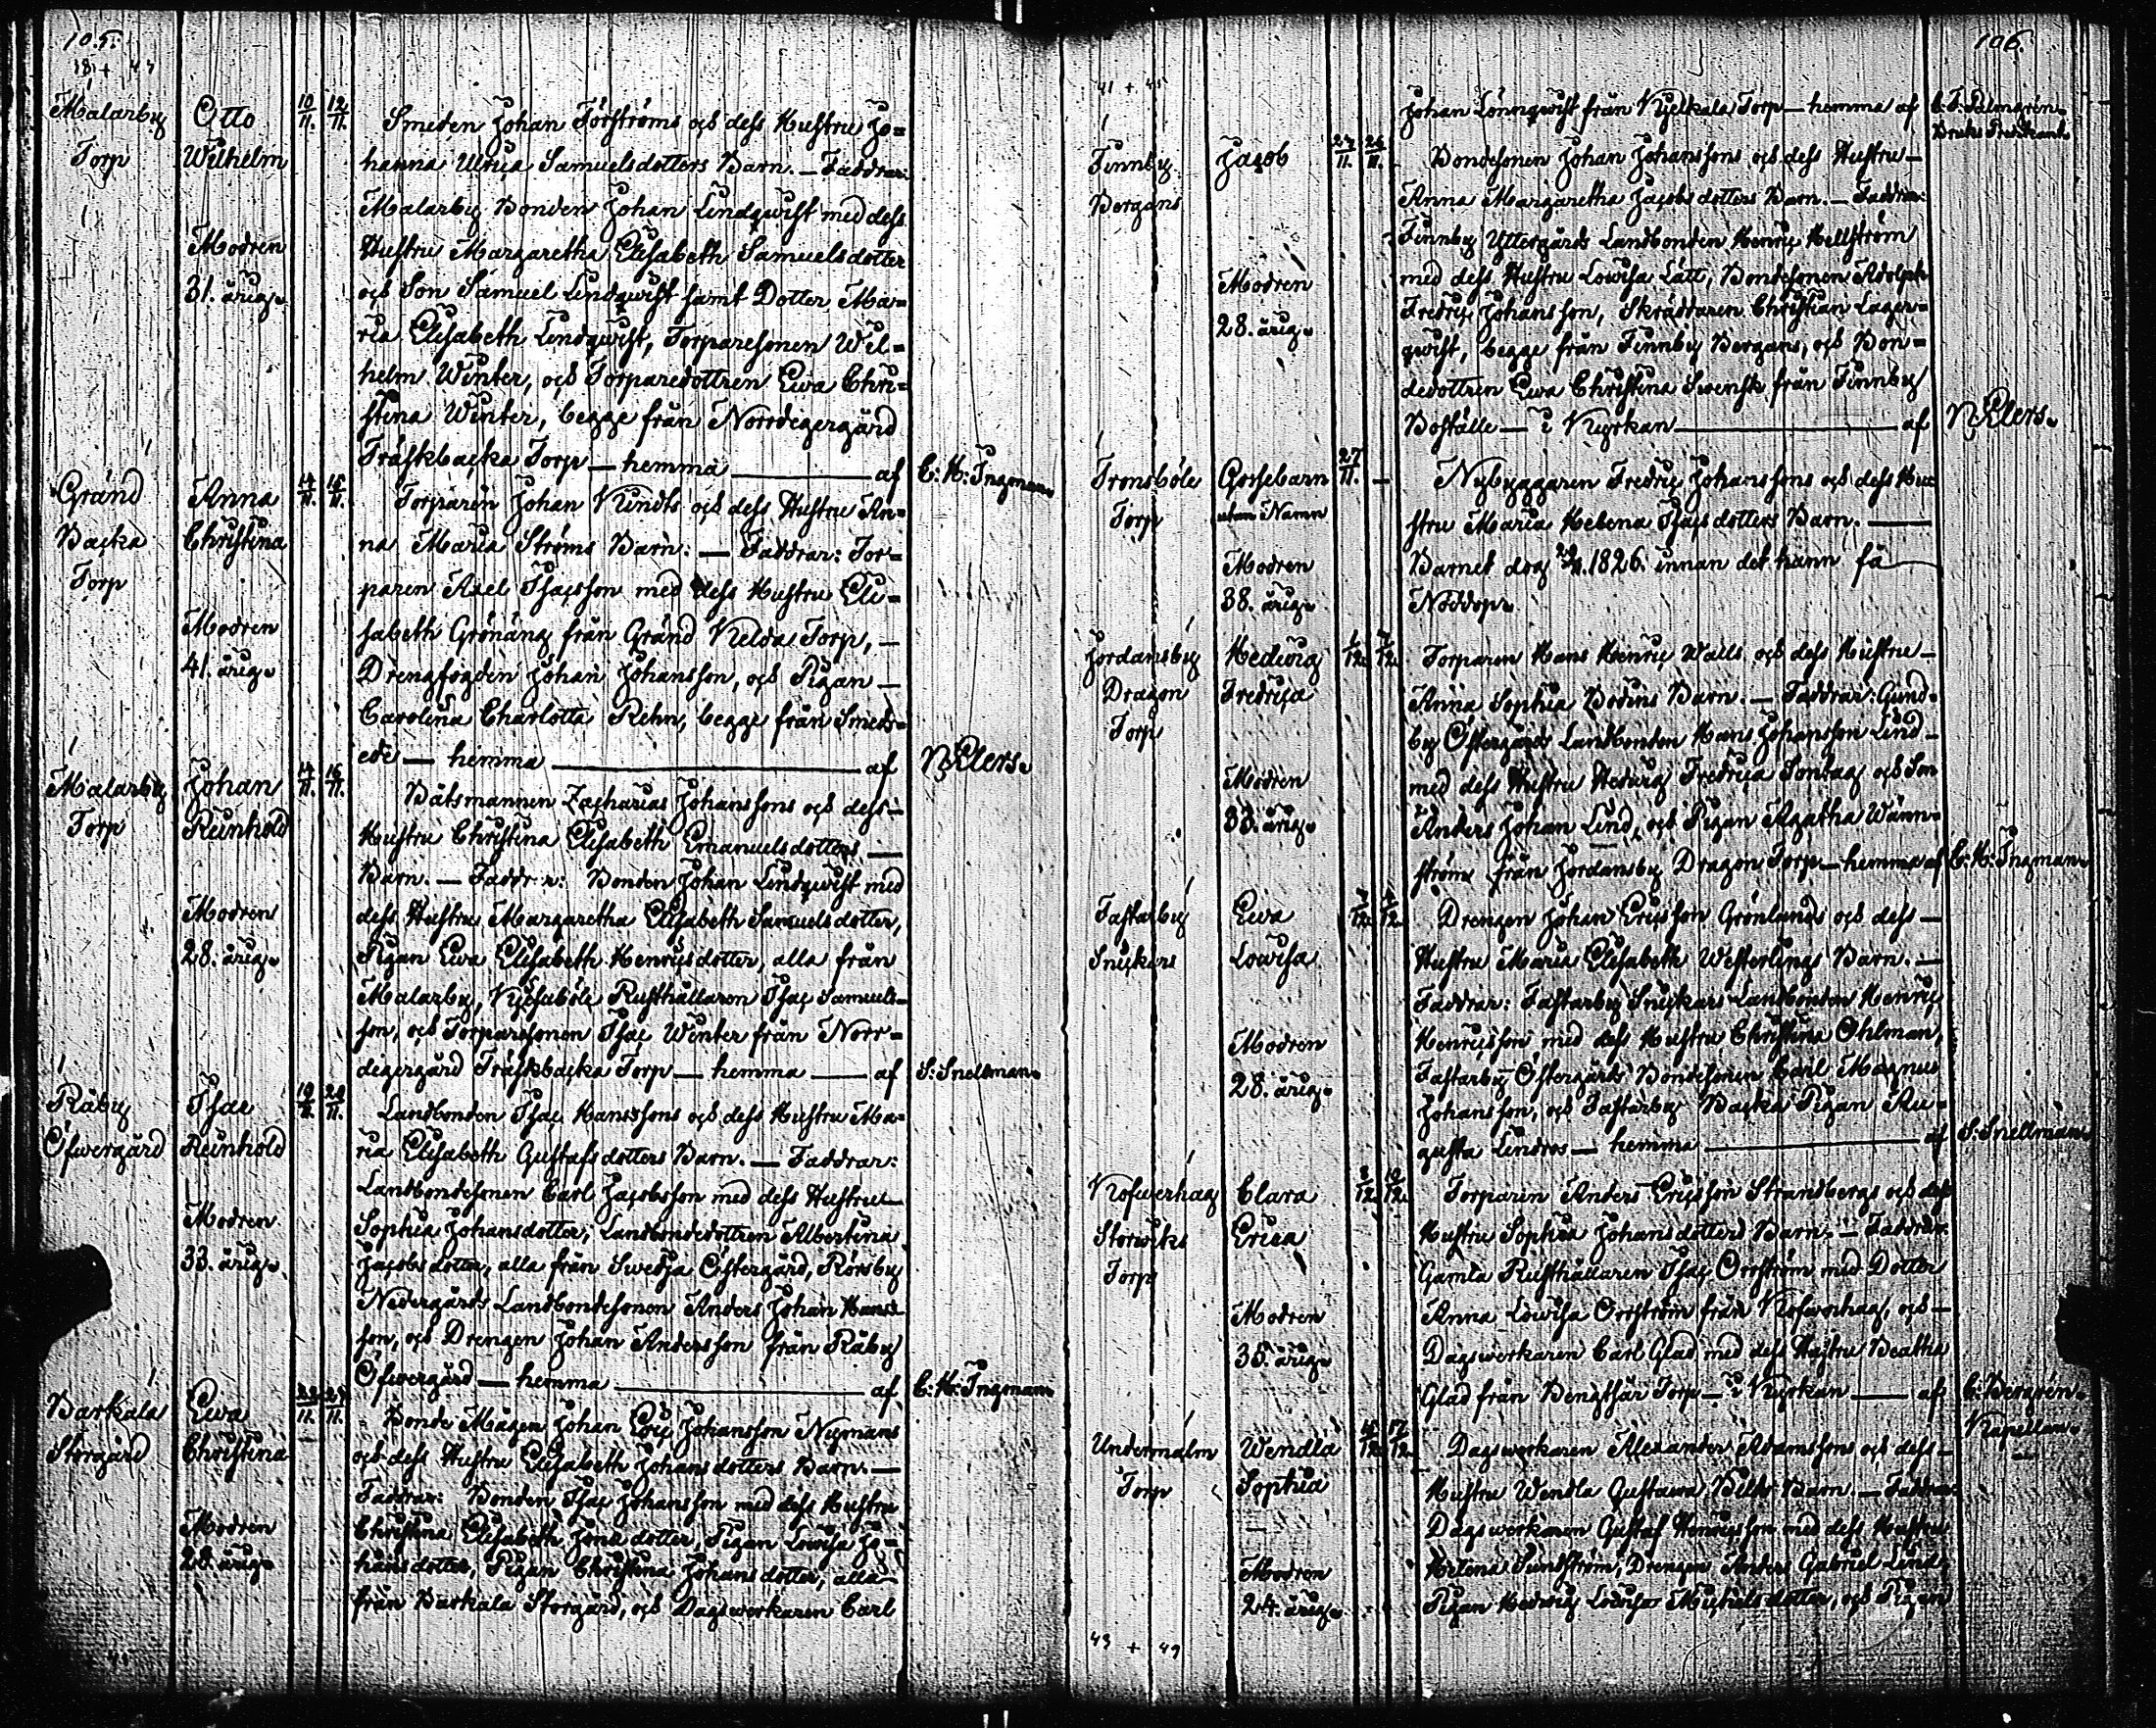 105.
Malarby
Torp
Otto
Wilhelm
Modren
31. årig.
10/11. 12/11.
Smeden Johan Förströms och dess Hustru Jo=
hanna Ulrica Samuelsdotters Barn. — Faddrar:
Malarby Bonden Johan Lindqwist med dess
Hustru Margaretha Elisabeth Samuelsdotter
och Son Samuel Lindqwist samt Dotter Ma=
ria Elisabeth Lindqwist, Torparesonen Wil=
helm Winter, och Torparedottren Ewa Chri=
stina Winter, begge från Norrdegergård
Träskbacka Torp — hemma — af
C: H: Ingman.
Gränd
Backa
Torp
Anna
Christina
Modren
41. årig.
Torparen Johan Kindts och dess Hustru An=
na Maria Ströms Barn. — Faddrar: Tor=
paren Axel Isacsson med dess Hustru Eli=
sabeth Grönäng från Gränd Kelda Torp, —
Drengfogden Johan Johansson, och Pigan —
Carolina Charlotta Rehn, begge från Smeds=
ede — hemma — af
N. Elers.
Malarby
Torp
Johan
Reinhold
Modren
28. årig.
Båtsmannen Zacharias Johanssons och dess —
Hustru Christina Elisabeth Emanuelsdotters —
Barn. — Faddrar: Bonden Johan Lindqwist med
dess Hustru Margaretha Elisabeth Samuelsdotter,
Pigan Ewa Elisabeth Henricsdotter, alla från
Malarby, Rusthållaren Isac Samuels=
son, och Torparesonen Isac Winter från Norr=
degergård Träskbacka Torp — hemma — af
S: Snellman.
Råby
Öfwergård
Isac
Reinhold
Modren
33. årig.
Landbonden Isac Hanssons och dess Hustru Ma=
ria Elisabeth Gustafsdotters Barn. — Faddrar:
Landbondesonen Carl Jacobsson med dess Hustru —
Sophia Johansdotter, Landbondedottren Albertina
Jacobsdotter, alla från Swedja Östergård, Rörsby
Nedergårds Landbondesonen Anders Johan Hans=
son, och Drengen Johan Andersson från Råby
Öfwergård — hemma — af
C: H: Ingman.
Barkala
Storgård
Ewa
Christina
Modren
28. årig.
Bonde Mågen Johan Eric Johansson Nymans
och dess Hustru Elisabeth Johansdotters Barn. —
Faddrar: Bonden Isac Johansson med dess Hustru
Christina Elisabeth Jonædotter, Pigan Lowisa Jo=
hansdotter, Pigan Christina Johansdotter, alla
från Barkala Storgård, och Dagswerkaren Carl
106.
41 + 45
Johan Lönnqwist från Kyrkala Torp — hemma af
C. F. Palmgrén.
Bruks Predikant.
Finnby
Bergans
Jacob
Modren
28. årig.
Bondesonen Johan Johanssons och dess Hustru —
Anna Margaretha Jacobsdotters Barn. — Faddrar:
Finnby Yttergårds Landbonden Henric Hellström
med dess Hustru Lowisa Lätt, Bondesonen Adolph
Fredric Johansson, Skräddaren Christian Lager=
qwist, begge från Finnby Bergans, och Bon=
dedottren Ewa Christina Swensk från Finnby
Boställe — i Kyrkan — af
N. Elers.
Tronsböle
Torp
Gossebarn
utan Namn
Modren
38. årig.
27/11. —
Nybyggaren Fredric Johanssons och dess Hu=
stru Maria Helena Isacsdotters Barn. —
Barnet dog 1826. innan det hann få
Nöddop.
Jordansby
Dragon
Torp
Hedwig
Fredrica
Modren
33. årig.
Torparen Hans Henric Walls och dess Hustru —
Anna Sophia Bodins Barn. — Faddrar: Gund=
by Östergårds Landbonden Hans Johansson Lind —
med dess Hustru Hedwig Fredrica Sontag och Son
Anders Johan Lind, och Pigan Agatha Wänn=
ström från Jordansby Dragon Torp — hemma af
C: H: Ingman.
Fastarby
Snickars
Ewa
Lowisa
Modren
28. årig.
Drengen Johan Ericsson Grönlunds och dess —
Hustru Maria Elisabeth Westerlings Barn. —
Faddrar: Fastarby Snickars Landbonden Henric
Henricsson med dess Hustru Christina Ohlman,
Fastarby Östergårds Bondesonen Carl Magnus
Johansson, och Fastarby Backa Pigan Au=
gusta Lindros — hemma — af
S: Snellman.
Kofwerhag
Storwiks
Torp
Clara
Erica
Modren
35. årig.
Torparen Anders Ericsson Strandbergs och dess
Hustru Sophia Johansdotters Barn. — Faddrar:
Gamla Rusthållaren Isac Orrström med Dotter
Anna Lowisa Orrström från Kofwerhag, och —
Dagswerkaren Carl Glad med dess Hustru Beatha
Glad från Bengtsår Torp — i Kyrkan — af
C: Bergrén.
Kapellan.
Undermalm
Torp
Wendla
Sophia
Modren
24. årig.
Dagswerkaren Alexander Adamssons och dess —
Hustru Wendla Gustawa Barn. — Faddrar:
Dagswerkaren Gustaf Henricsson med dess Hustru
Helena Sundström, Drengen Anders Gabriel Lind,
Pigan Hedwig Lowisa Michelsdotter, och Pigan
43 + 49